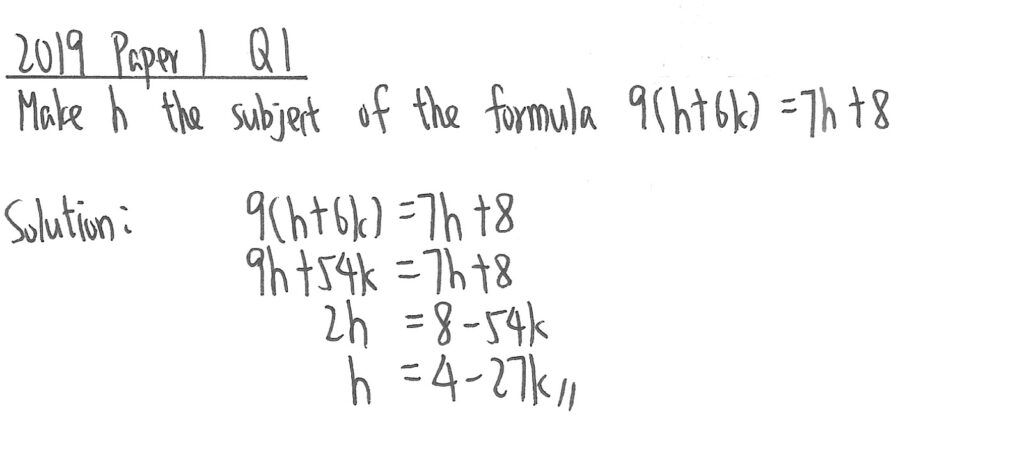 2019 Paper 1 Q1
Make h the subject of the formula 9(h+6k) = 7h+8
Solution: 9(h+6k) = 7h+8
9h+54k = 7h+8
2h = 8-54k
h = 4-27k //